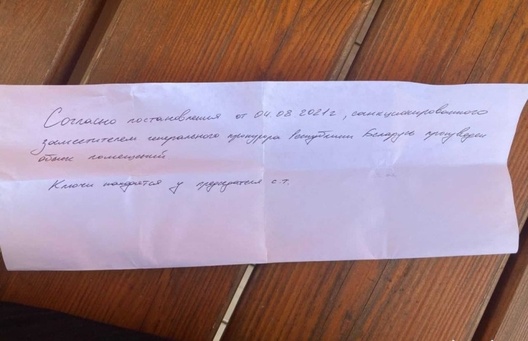 Согласно постановления от 04.08 2021г, санкционированного
заместителем генерального прокурора Республики Беларусь произведен
обыск помещений
Ключи находятся у председателя с.т.